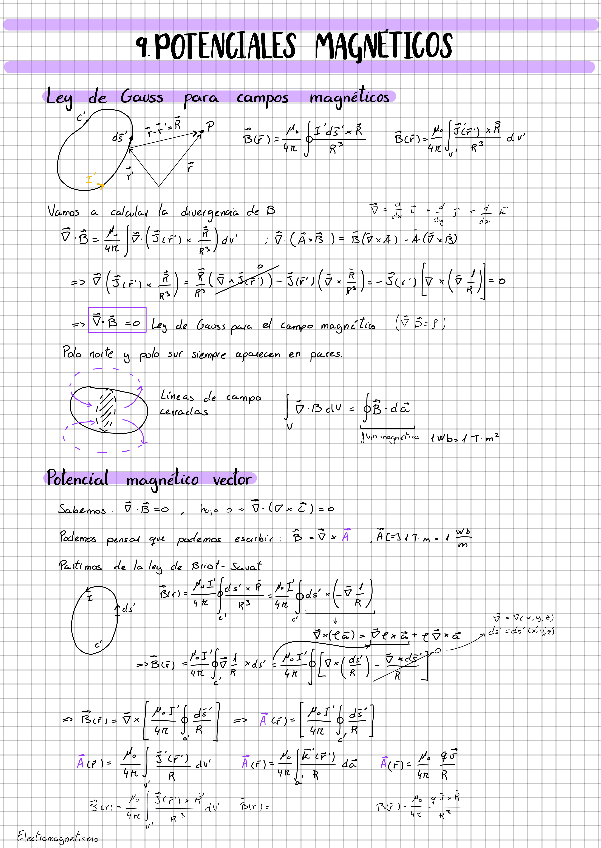 9. POTENCIALES MAGNÉTICOS
Ley de Gauss para campos magnéticos
c' ds' r⃗-r⃗'=R⃗ P r⃗' r⃗ I'
B⃗(r⃗) = μ₀/4π ∮ I' ds⃗' × R⃗ / R³    B⃗(r⃗) = μ₀/4π ∫ J⃗(r⃗') × R⃗ / R³ dv'
Vamos a calcular la divergencia de B
∇⃗·B⃗ = μ₀/4π ∫ ∇⃗·(J⃗(r⃗') × R⃗/R³) dv' ; ∇⃗(A⃗×B⃗) = B⃗(∇×A) - A⃗(∇×B⃗)
=> ∇⃗(J⃗(r') × R⃗/R³) = R⃗/R³ (∇×J⃗(r⃗')) - J⃗(r')(∇⃗ × R⃗/R³) = - J⃗(r')[∇×(∇⃗ 1/R)] = 0
=> ∇⃗·B⃗ = 0 Ley de Gauss para el campo magnético
Polo norte y polo sur siempre aparecen en pares.
Líneas de campo
cerradas
∫ ∇⃗·B dv = ∮ B⃗·da⃗
flujo magnético 1Wb = 1 T·m²
Potencial magnético vector
Sabemos: ∇⃗·B⃗ = 0 , ∇⃗·(∇×C⃗) = 0
Podemos pensar que podemos escribir: B⃗ = ∇⃗×A⃗ , A⃗ [=] 1 T·m = 1 Wb/m
Partimos de la ley de Biot-Savat
I ds⃗' c'
B⃗(r) = μ₀I'/4π ∮ ds'×R⃗ / R³ = μ₀I'/4π ∮ ds'×(-∇⃗ 1/R)
∇⃗×(ρa⃗) = ∇⃗ρ×a⃗ + ρ∇⃗×a⃗
∇⃗ = ∇(x,y,z)
=> B⃗(r⃗) = μ₀I'/4π ∮ ∇⃗ 1/R × ds' = μ₀I'/4π ∮ [∇×(ds⃗'/R) - ∇×ds⃗'/R] 0
=> B⃗(r⃗) = ∇⃗×[μ₀I'/4π ∮ ds⃗'/R] => A⃗(r⃗) = [μ₀I'/4π ∮ ds⃗'/R]
A⃗(r⃗) = μ₀/4π ∫ J⃗(r⃗')/R dv'    A⃗(r⃗) = μ₀/4π ∫ K⃗(r⃗')/R da⃗    A⃗(r⃗) = μ₀/4π qv⃗/R
B⃗(r) = μ₀/4π ∫ J⃗(r⃗')×R⃗ / R³ dv'    B⃗(r) =    B(r⃗) = μ₀/4π qv⃗×R⃗ / R³
Electromagnetismo